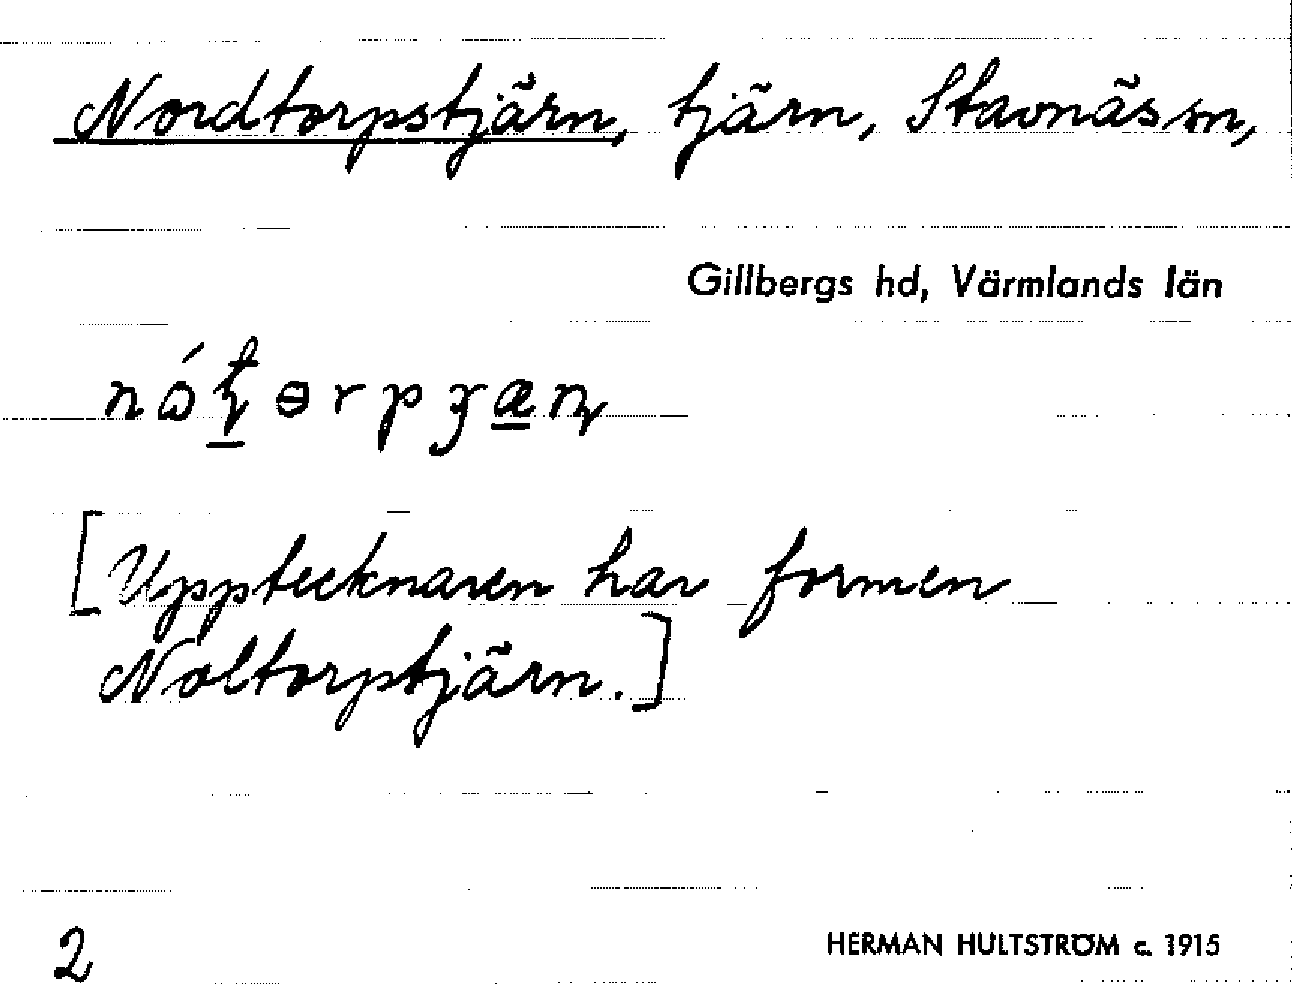 Nordtorpstjärn, tjärn, Stavnäs sn,
Gillbergs hd, Värmlands län
[Upptecknaren har formen
Noltorptjärn.]
2
HERMAN HULTSTRÖM c. 1915